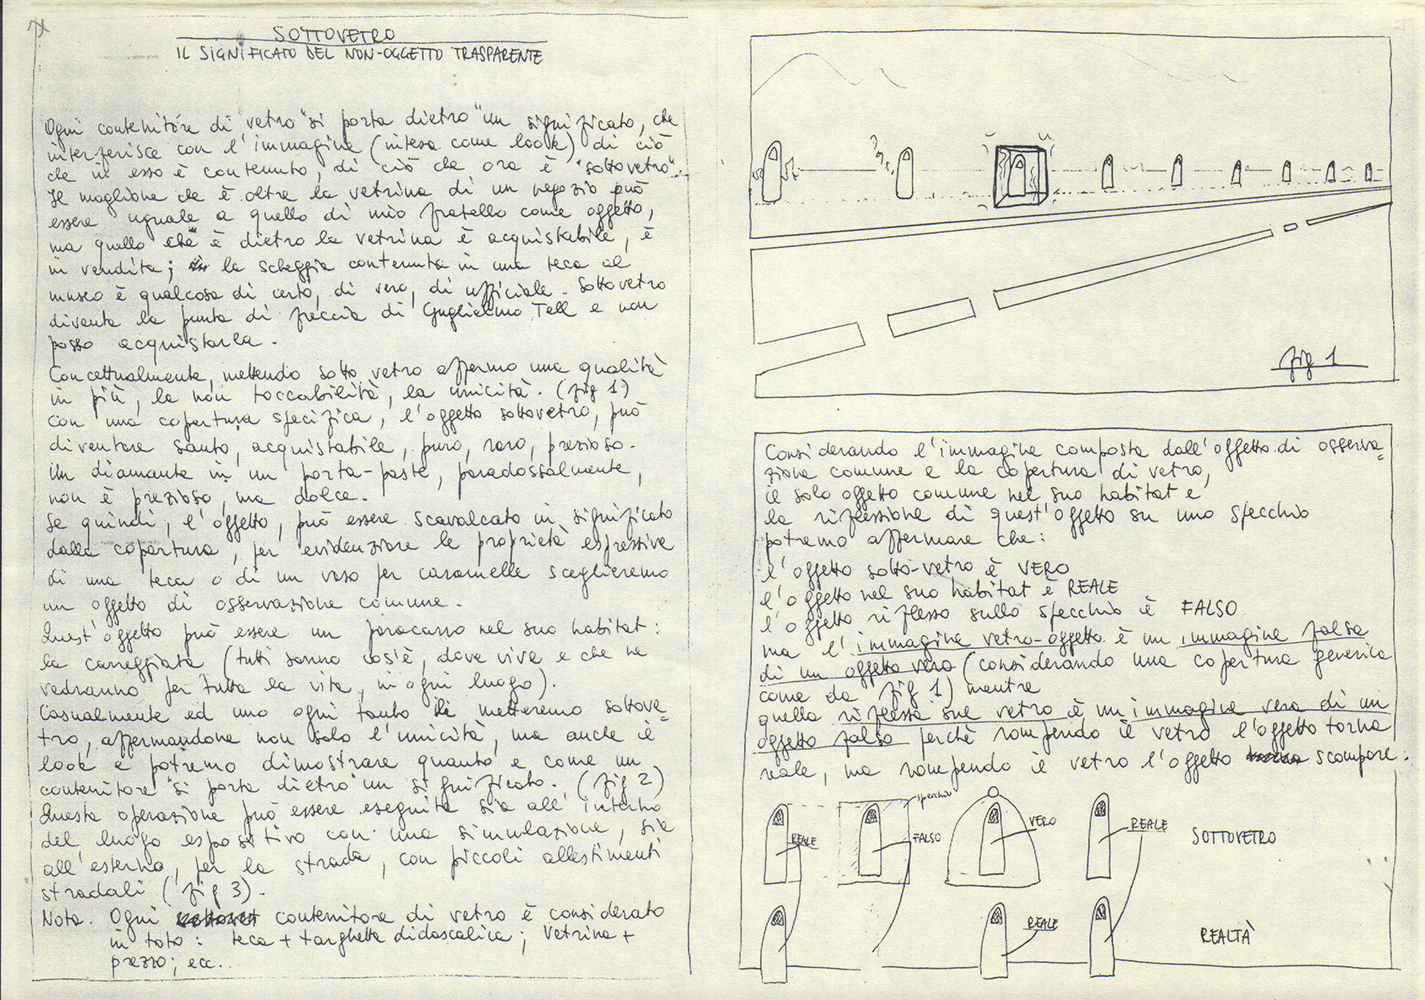 SOTTOVETRO
IL SIGNIFICATO DEL NON-OGGETTO TRASPARENTE
Ogni contenitore di vetro "si porta dietro" un significato, che
interferisce con l'immagine (intesa come look) di ciò
che in esso è contenuto, di ciò che ora è "sottovetro".
Il maglione che è oltre la vetrina di un negozio può
essere uguale a quello di mio fratello come oggetto,
ma quello che è dietro la vetrina è acquistabile, è
in vendita; la scheggia contenuta in una teca al
museo è qualcosa di certo, di vero, di ufficiale. Sottovetro
diventa la punta di freccia di Guglielmo Tell e non
posso acquistarla.
Concettualmente, mettendo sotto vetro affermo una qualità
in più, la non toccabilità, la unicità. (fig 1)
con una copertura specifica, l'oggetto sottovetro, può
diventare santo, acquistabile, puro, raro, prezioso.
Un diamante in un porta-paste, paradossalmente,
non è prezioso, ma dolce.
Se quindi, l'oggetto, può essere scavalcato in significato
dalla copertura, per evidenziare le proprietà espressive
di una teca o di un vaso per caramelle sceglieremo
un oggetto di osservazione comune.
Quest'oggetto può essere un paracarro nel suo habitat:
la carreggiata (tutti sanno cos'è, dove vive e che ne
vedranno per tutta la vita, in ogni luogo).
Casualmente ed uno ogni tanto li metteremo sottove=
tro, affermandone non solo l'unicità, ma anche il
look e potremo dimostrare quanto e come un
contenitore "si porta dietro" un significato. (fig 2)
Questa operazione può essere eseguita sia all'interno
del luogo espositivo con una simulazione, sia
all'esterno, per la strada, con piccoli allestimenti
stradali (fig 3).
Nota. Ogni contenitore di vetro è considerato
in toto: teca + targhetta didascalica; vetrina +
prezzo; ecc..
fig 1
Considerando l'immagine composta dall'oggetto di osserva=
zione comune e la copertura di vetro,
il solo oggetto comune nel suo habitat e,
la riflessione di quest'oggetto su uno specchio
potremo affermare che:
l'oggetto sotto-vetro è VERO
l'oggetto nel suo habitat è REALE
l'oggetto riflesso sullo specchio è FALSO
ma l'immagine vetro-oggetto è un immagine falsa
di un oggetto vero (considerando una copertura generica
come da fig 1) mentre
quella riflessa sul vetro è un immagine vera di un
oggetto falso perchè rompendo il vetro l'oggetto torna
reale, ma rompendo il vetro l'oggetto scompare.
specchio
REALE
FALSO
VERO
REALE
SOTTOVETRO
REALE
REALTÀ